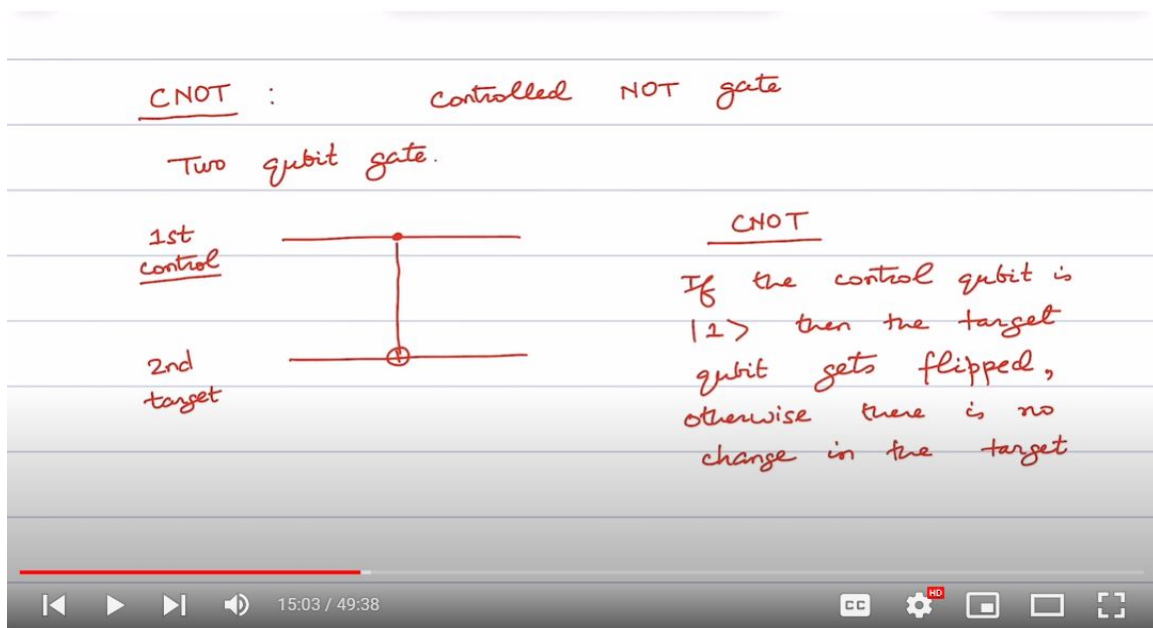 CNOT : Controlled NOT gate
Two qubit gate.
1st
control
2nd
target
CNOT
If the control qubit is
|1> then the target
qubit gets flipped,
otherwise there is no
change in the target
15:03 / 49:38
CC
HD